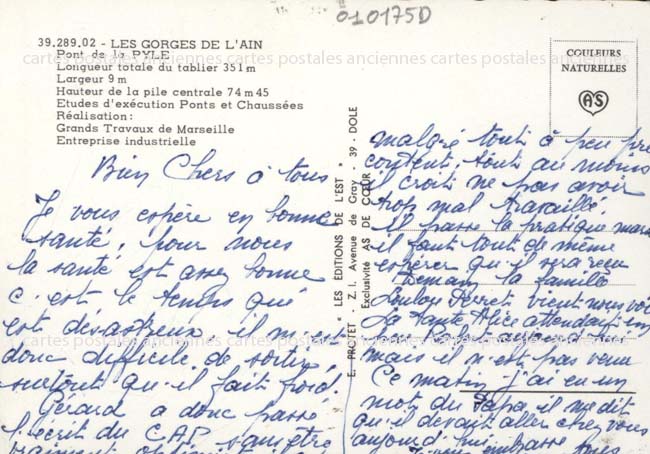 010175D
39.289.02 - LES GORGES DE L'AIN
Pont de la PYLE
Longueur totale du tablier 351 m
Largeur 9 m
Hauteur de la pile centrale 74 m 45
Etudes d'exécution Ponts et Chaussées
Réalisation :
Grands Travaux de Marseille
Entreprise industrielle
COULEURS
NATURELLES
AS
cartes postales anciennes cartes postales anciennes cartes postales anciennes
Bien Chers à tous
Je vous espère en bonne
santé, pour nous
la santé est assez bonne
c'est le temps qui
est désastreux. il m'est
donc difficile de sortir,
surtout qu'il fait froid.
Gérard a donc passé
l'écrit du CAP sans être
vraiment
E. PROTET - Z.I. Avenue de Gray - 39 - DOLE
" LES ÉDITIONS DE L'EST "
Exclusivité AS DE CŒUR
malgré tout à peu près
content, tout au moins
il croit ne pas avoir
trop mal travaillé.
Il passe la pratique
il faut tout de même
espérer qu'il sera reçu
la famille
Perret vient nous voir
La tante Alice attendait
mais il n'est pas venu
Ce matin j'ai eu un
mot du Papa il me dit
qu'il devait aller chez vous
aujourd'hui.